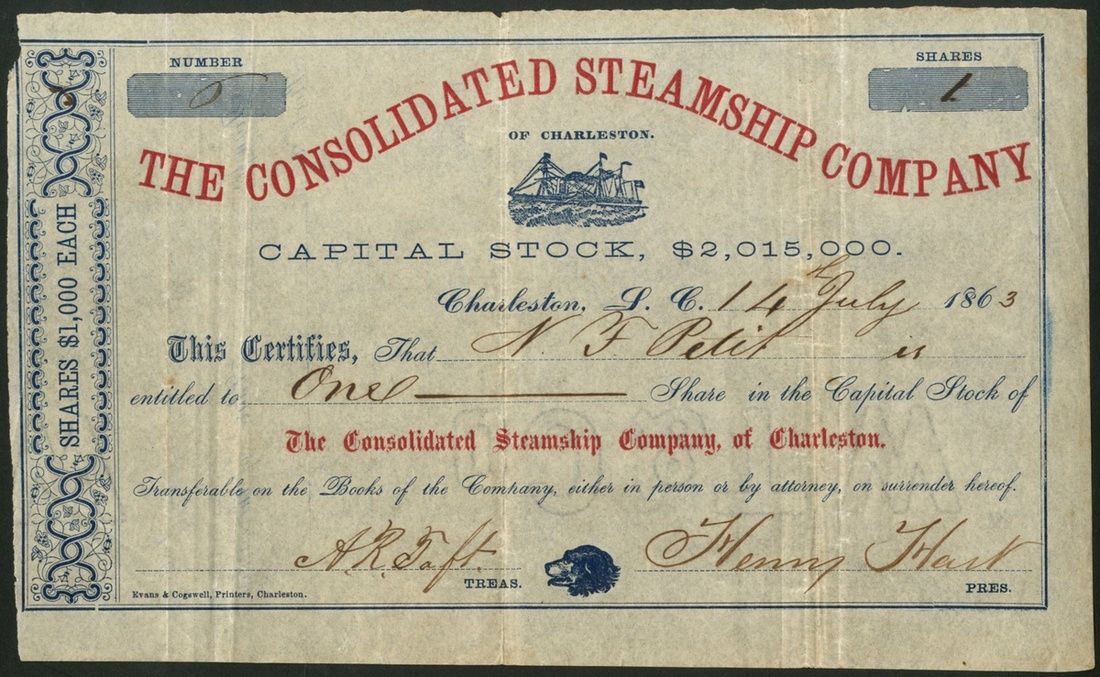 NUMBER
SHARES
1
THE CONSOLIDATED STEAMSHIP COMPANY
OF CHARLESTON.
CAPITAL STOCK, $2,015,000.
Charleston, S. C. 14th July 1863
This Certifies, That N. F. Petit is
entitled to One Share in the Capital Stock of
The Consolidated Steamship Company, of Charleston.
Transferable on the Books of the Company, either in person or by attorney, on surrender hereof.
A. R. Taft. Henry Hart
TREAS. PRES.
Evans & Cogswell, Printers, Charleston.
SHARES $1,000 EACH